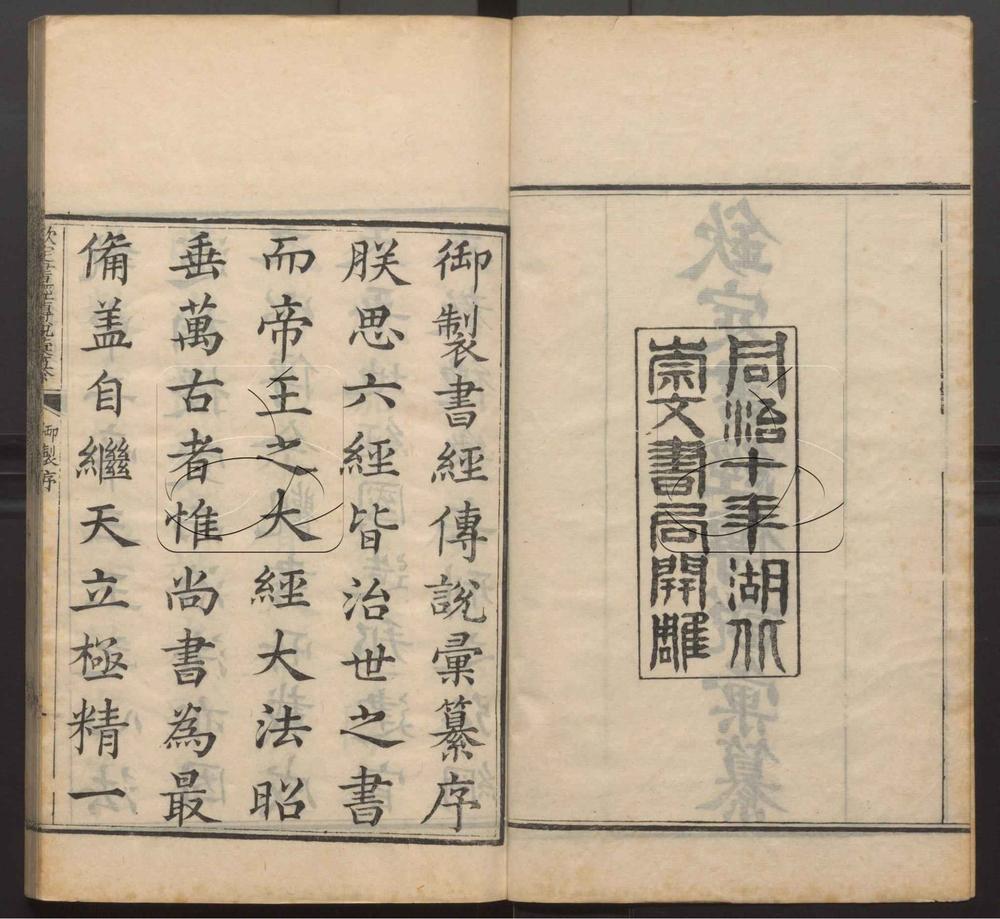 同治十年湖北
崇文書局開雕
御製書經傳說彙纂序
朕思六經皆治世之書
而帝王之大經大法昭
垂萬古者惟尚書為最
備葢自繼天立極精一
欽定書經傳說彙纂
御製序